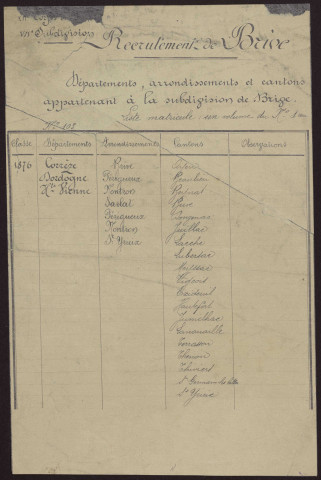 VIIe Subdivision
Recrutement de Brive
Départements, arrondissements et cantons
appartenant à la subdivision de Brive.
Liste matricule, un volume de
Classe Départements Arrondissements Cantons Observations
1876 Corrèze Brive
Dordogne Périgueux
Hte Vienne Nontron
Sarlat Brive
Périgueux
Nontron Juillac
St Yrieix Larche
Lubersac
Meyssac
Vigeois
Excideuil
Hautefort
Jumilhac
Lanouaille
Terrasson
Thenon
Thiviers
St Germain les Belles
St Yrieix